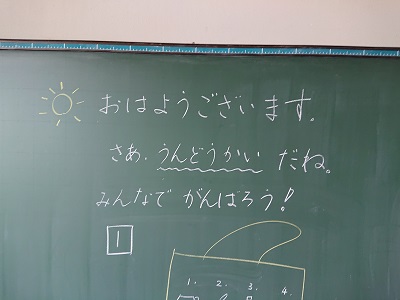 おはようございます。
さあ、うんどうかい だね。
みんなで がんばろう！
1
1. 2. 3. 4.